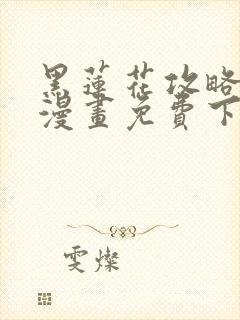 黑蓮花攻略
漫畫免費下
雯燦